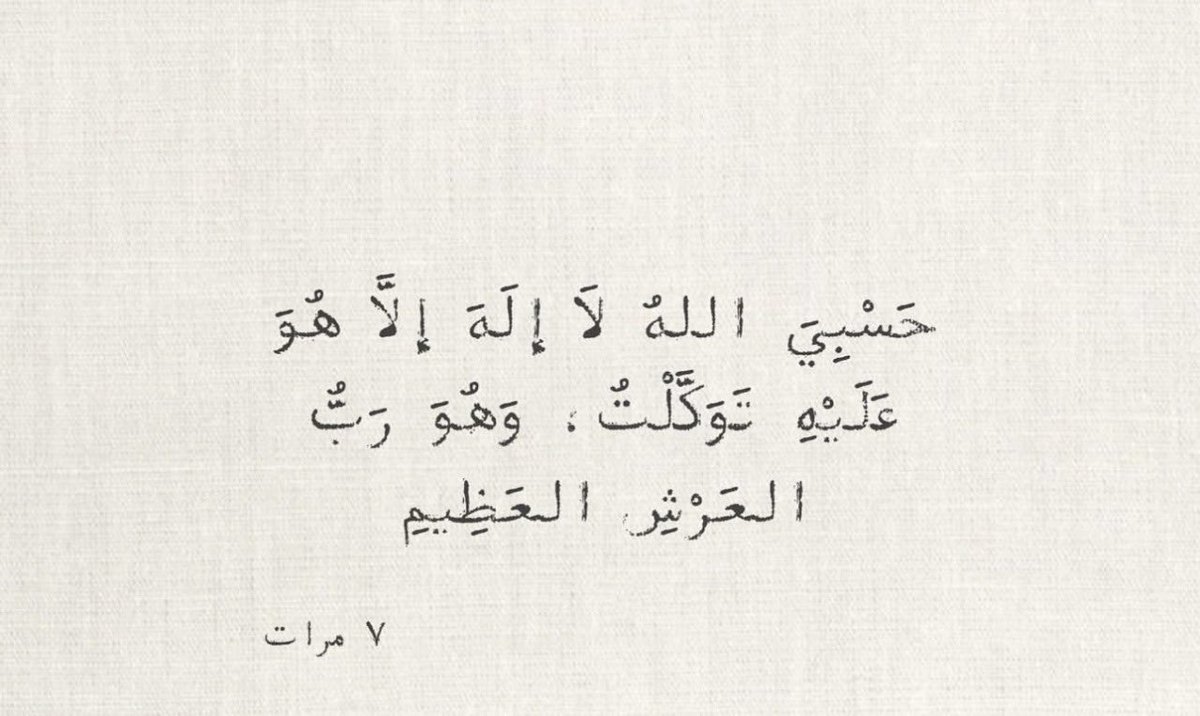 حَسْبِيَ اللهُ لَا إِلَهَ إِلَّا هُوَ
عَلَيْهِ تَوَكَّلْتُ، وَهُوَ رَبُّ
العَرْشِ العَظِيمِ
٧ مرات